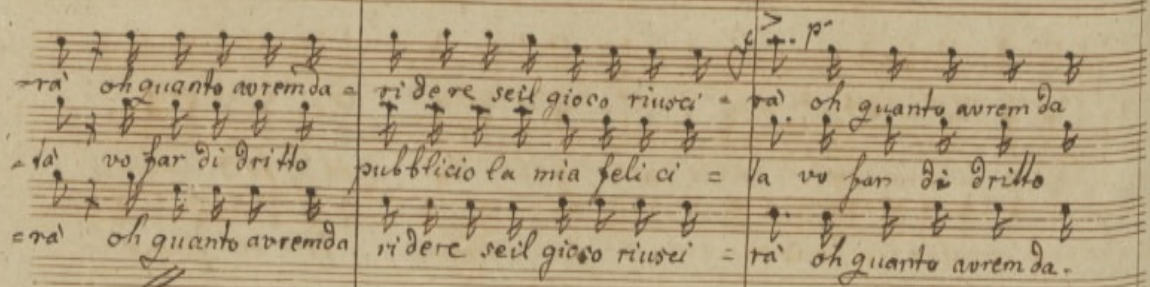 p.
=rà oh quanto avrem da = ridere se il gioco riusci = rà oh quanto avrem da
=tà vo far di dritto pubblicio la mia felici = ta vo far di dritto
=rà oh quanto avrem da ridere se il gioco riusci = rà oh quanto avrem da.